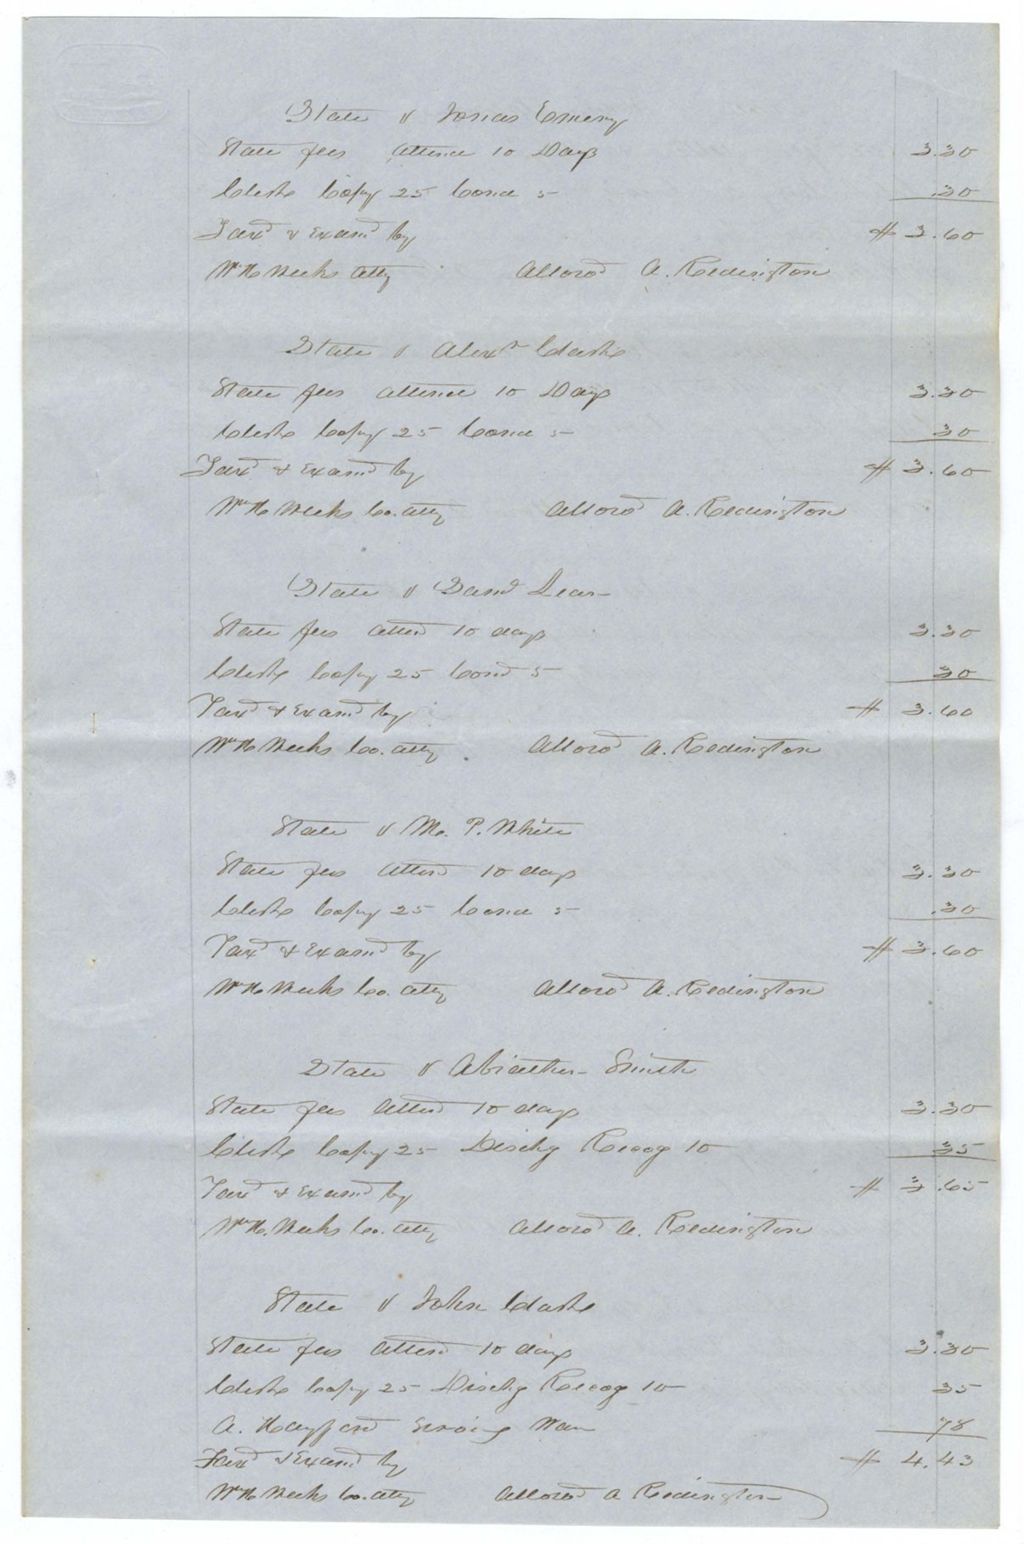 State v Jonas Emery
State fees attence 10 Days 3.30
Clerks Copy 25 Cona 5 .30
Taxd & Examd by # 3.60
Wm H. Weeks atty Allowd A. Redington
State v Alexr Clarke
State fees attence 10 Days 3.30
Clerks Copy 25 Cona 5 30
Taxd & Examd by # 3.60
Wm H. Weeks Co. atty Allowd A. Redington
State v Saml Dear
State fees attend 10 days 3.30
Clerks Copy 25 Cond 5 30
Taxd & Examd by # 3.60
Wm H. Weeks Co. atty Allowd A. Redington
State v P. White
State fees attend 10 days 3.30
Clerks Copy 25 Cona 5 .30
Taxd & Examd by # 3.60
Wm H. Weeks Co. atty Allowd A. Redington
State v Abiather Smith
State fees attend 10 days 3.30
Clerks Copy 25 Dischg Recog 10 35
Taxd & Examd by # 3.65
Wm H. Weeks Co. atty Allowd A. Redington
State v John Clarke
State fees attend 10 days 3.30
Clerks Copy 25 Dischg Recog 10 35
A. Hayford Serving Warr 78
Taxd & Examd by # 4.43
Wm H. Weeks Co. atty Allowd A Redington